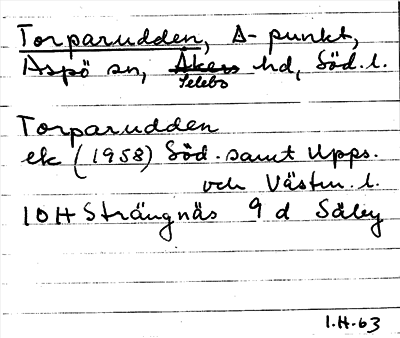 Torparudden, Δ-punkt,
Aspö sn, Åkers hd, Söd. l.
Selebo
Torparudden
ek (1958) Söd. samt Upps.
och Västm. l.
10H Strängnäs 9 d Säby
I.H.63